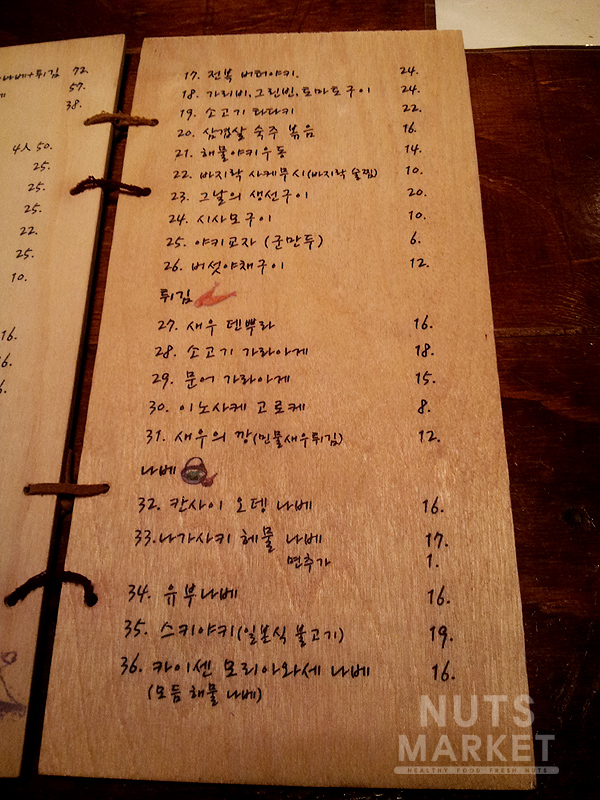 나베+튀김 72.
57.
38.
4人 50.
25.
25.
25.
22.
25.
10.
16.
16.
17. 전복 버터야키. 24.
18. 가리비, 그린빈, 토마토구이 24.
19. 소고기 타다키 22.
20. 삼겹살 숙주 볶음 16.
21. 해물야키우동 14.
22. 바지락 사케무시(바지락 술찜) 10.
23. 그날의 생선구이 20.
24. 시사모구이 10.
25. 야키교자 (군만두) 6.
26. 버섯야채구이 12.
튀김
27. 새우 덴뿌라 16.
28. 소고기 가라아게 18.
29. 문어 가라아게 15.
30. 이노사케 고로케 8.
31. 새우의 깡(민물새우튀김) 12.
나베
32. 칸사이 오뎅 나베 16.
33. 나가사키 해물 나베 17.
면추가 1.
34. 유부나베 16.
35. 스키야키(일본식 불고기) 19.
36. 카이센 모리아와세 나베 16.
(모듬 해물 나베)
NUTS
MARKET
HEALTHY FOOD FRESH NUTS